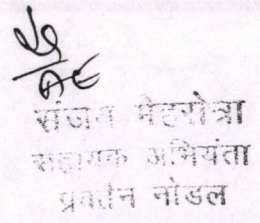 संजय मेहरोत्रा
सहायक अभियंता
प्रवर्तन नोडल